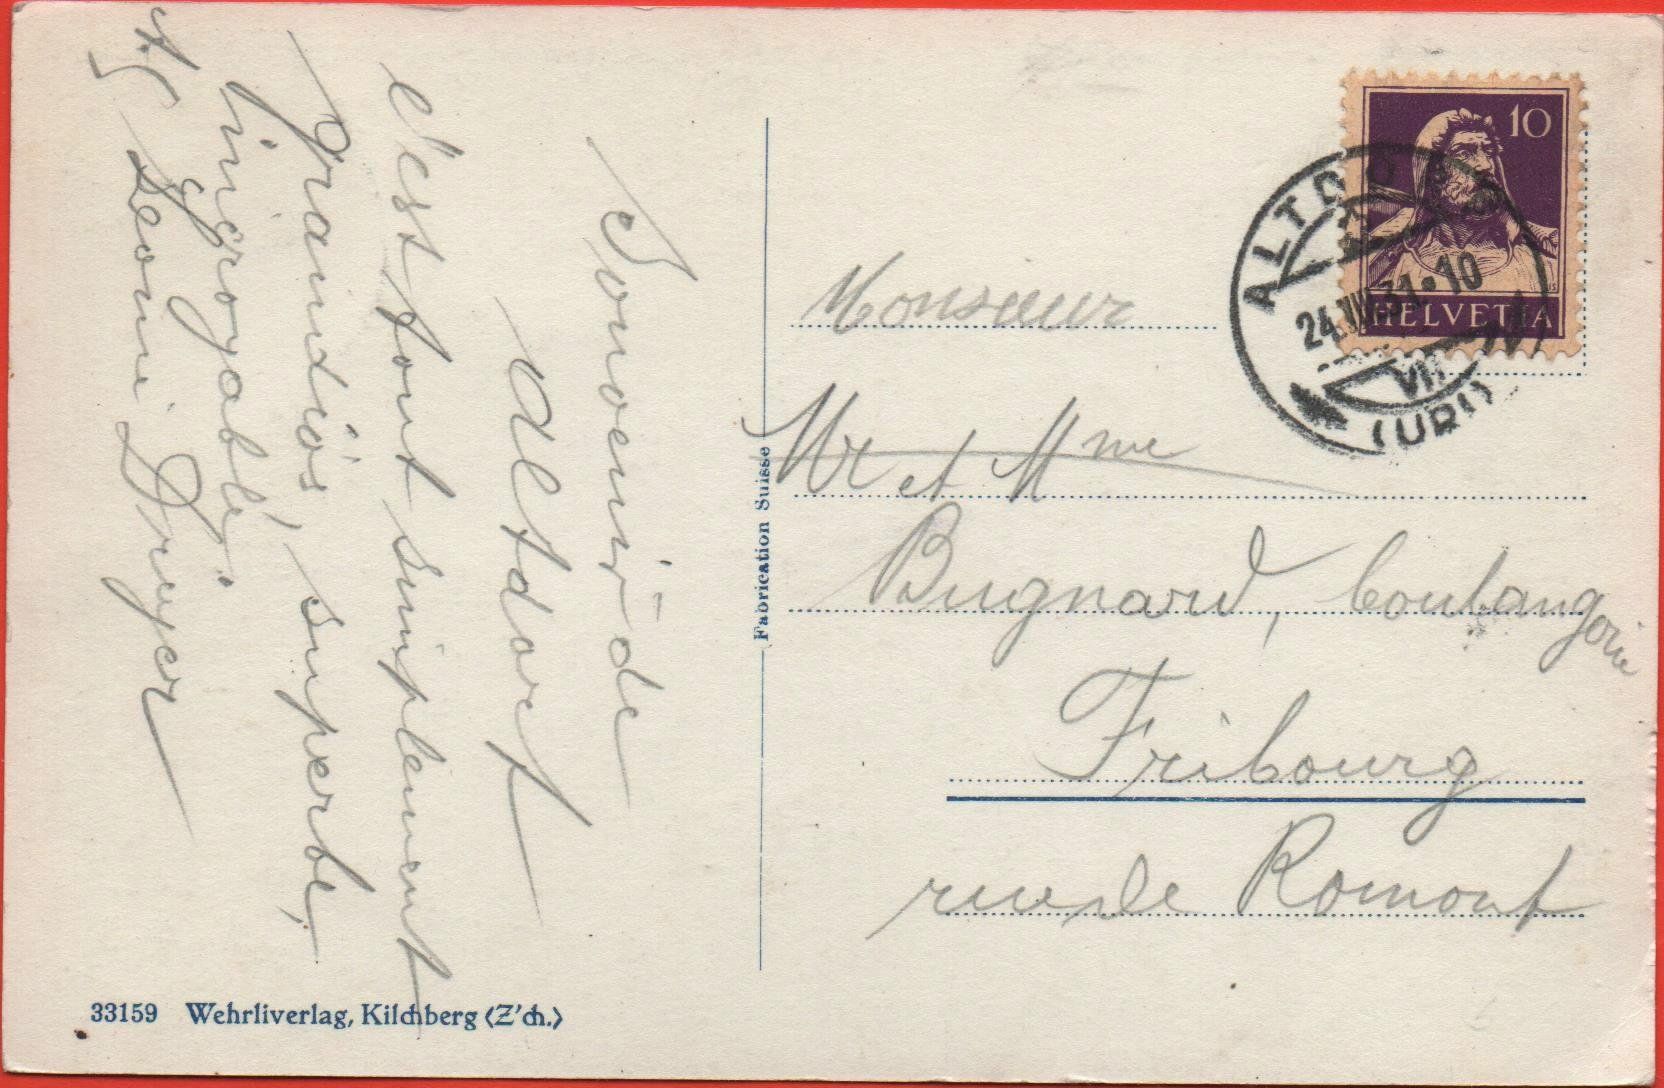 Souvenir de
Altdorf
c'est tout simplement
grandios, superbe,
incroyable
Leonie Dreyer
33159 Wehrliverlag, Kilchberg (Z'ch.)
Fabrication Suisse
10
HELVETIA
ALTDORF
24.VIII.31.10
VII
(URI)
Monsieur
Mr et Mme
Bugnard, boulangerie
Fribourg
rue de Romont